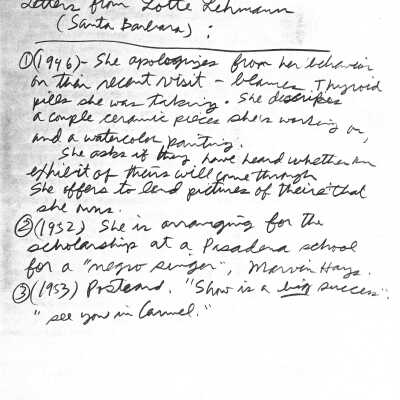 Letters from Lotte Lehmann
(Santa Barbara) :
①(1946)- She apologizes from her behavior
on their recent visit - blames Thyroid
pills she was taking. She describes
a couple ceramic pieces she's working on,
and a watercolor painting.
She asks if they have heard whether an
exhibit of theirs will come through
She offers to lend pictures of theirs that
she owns.
②(1952) She is arranging for the
scholarship at a Pasadena school
for a "negro singer", Marvin Hays.
③(1953) Postcard. "Show is a big success".
"see you in Carmel."